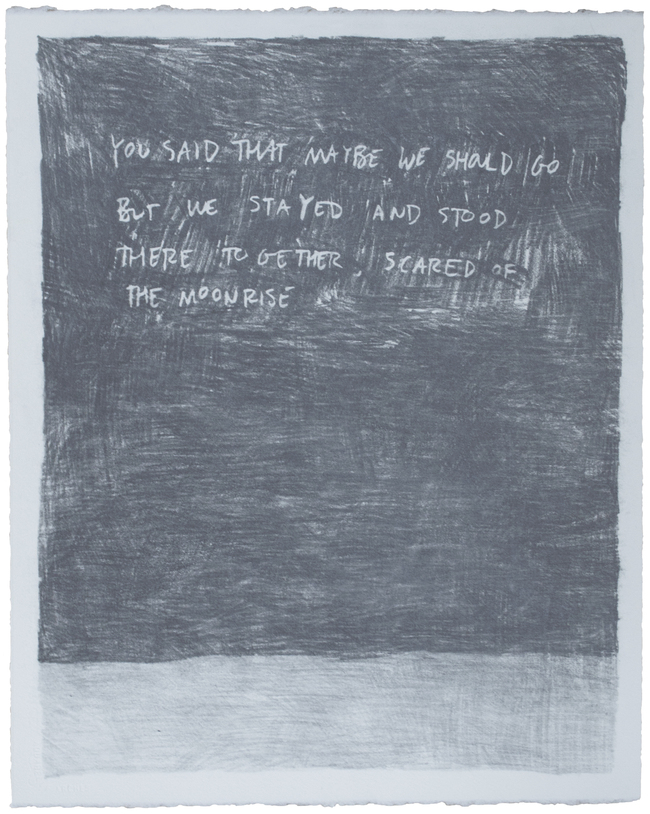 YOU SAID THAT MAYBE WE SHOULD GO
BUT WE STAYED AND STOOD
THERE TOGETHER, SCARED OF
THE MOONRISE